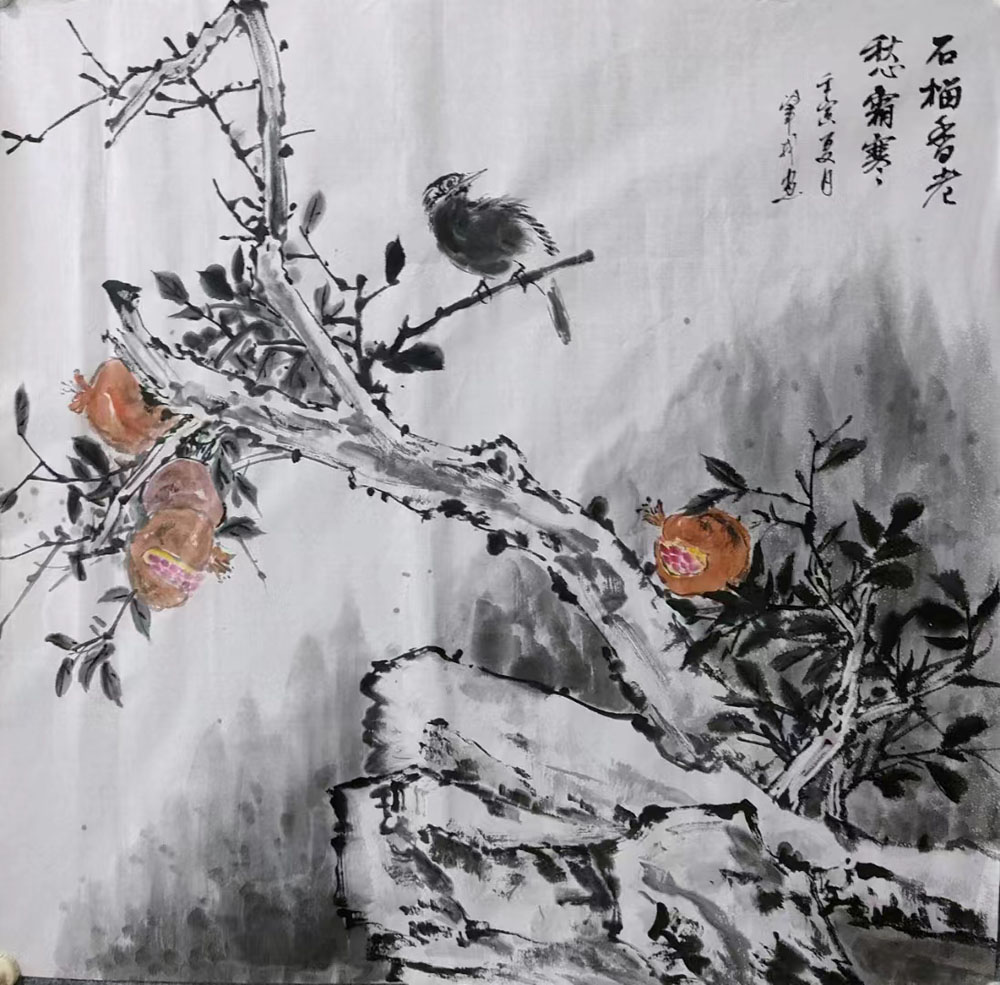 石榴香老
愁霜寒
壬寅夏月